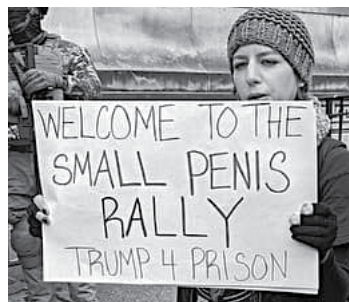 WELCOME TO THE
SMALL PENIS
RALLY
TRUMP 4 PRISON